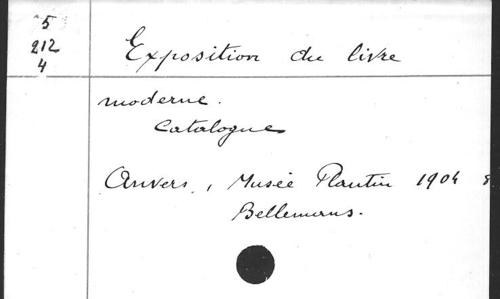 5
212
4
Exposition du livre
moderne.
Catalogue
Anvers, Musée Plantin 1904 8
Bellemans.